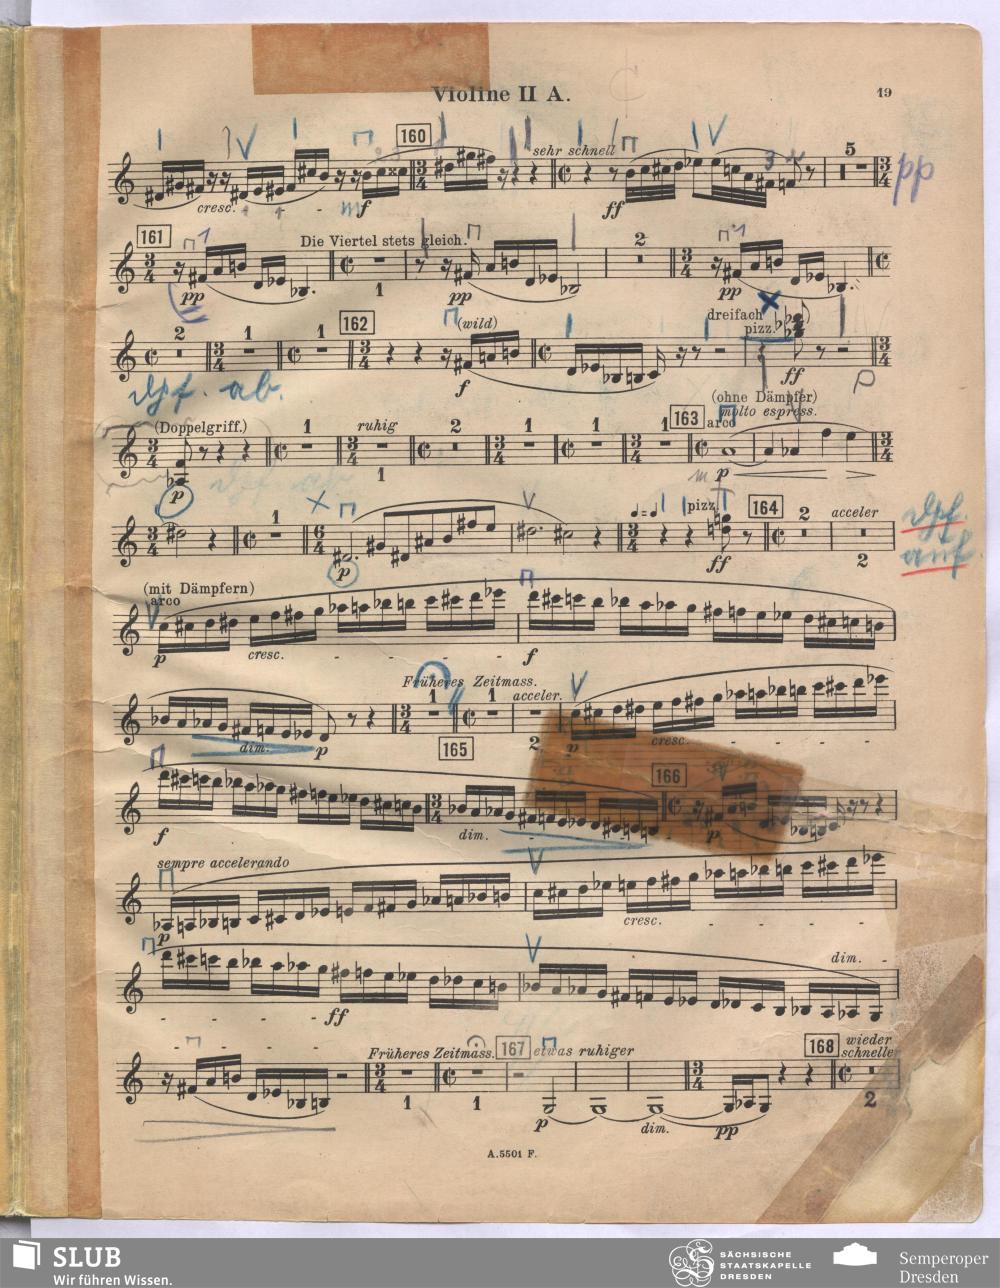 Violine II A.
19
160
sehr schnell
5
cresc.
mf
ff
pp
161
Die Viertel stets gleich.
2
pp
1
pp
pp
2
1
1
162
(wild)
dreifach
pizz.
f
ff
dpf. ab.
(Doppelgriff.)
1
ruhig
2
1
1
1
163
(ohne Dämpfer)
molto espress.
arco
p
1
m p
1
pizz.
164
2
acceler
p
ff
2
dpf.
auf
(mit Dämpfern)
arco
p
cresc.
f
Früheres Zeitmass.
1
1
acceler.
dim.
p
165
2
p
cresc.
166
f
dim.
p
sempre accelerando
p
cresc.
dim.
ff
Früheres Zeitmass.
167
etwas ruhiger
168
wieder
schneller
1
1
p
dim.
pp
2
A.5501 F.
SLUB
Wir führen Wissen.
SÄCHSISCHE
STAATSKAPELLE
DRESDEN
Semperoper
Dresden